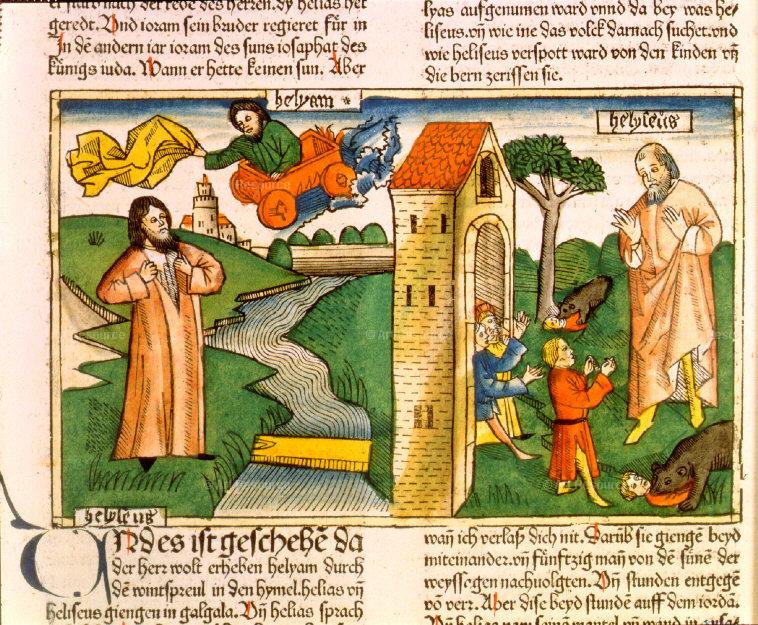 er starb nach der rede des herren. dy helias het
geredt. Und ioram sein bruder regieret für in
In dē andern iar ioram des suns iosaphat des
künigs iuda. Wann er hette keinen sun. Aber
lyas aufgenumen ward vnnd da bey was he⸗
liseus. vn̄ wie ine das volck darnach suchet. vnd
wie heliseus verspott ward von den kinden vn̄
die bern zerissen sie.
helyam
helyseus
helyseus
UNd es ist geschehē da
der herr wolt erheben helyam durch
dē wintspreul in den hymel. helias vn̄
heliseus giengen in galgala. Vn̄ helias sprach
wan̄ ich verlaß dich nit. Darūb sie giengē beyd
miteinander. vn̄ fünftzig man̄ von dē sünē der
weyssagen nachuolgten. Vn̄ stunden entgegē
vō verr. Aber dise beyd stundē auff dem iordā.